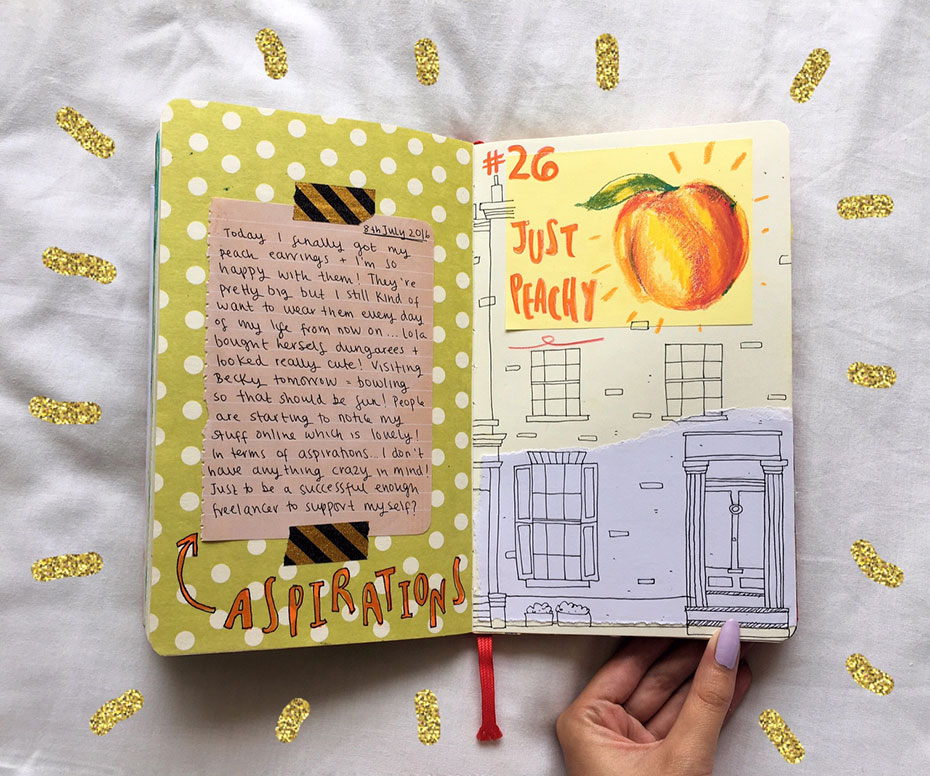 8th July 2016
Today I finally got my
peach earrings + I'm so
happy with them! They're
pretty big but I still kind of
want to wear them every day
of my life from now on... Lola
bought herself dungarees +
looked really cute! Visiting
Becky tomorrow = bowling
so that should be fun! People
are starting to notice my
stuff online which is lovely!
In terms of aspirations... I don't
have anything crazy in mind!
Just to be a successful enough
freelancer to support myself?
ASPIRATIONS
#26
JUST
PEACHY